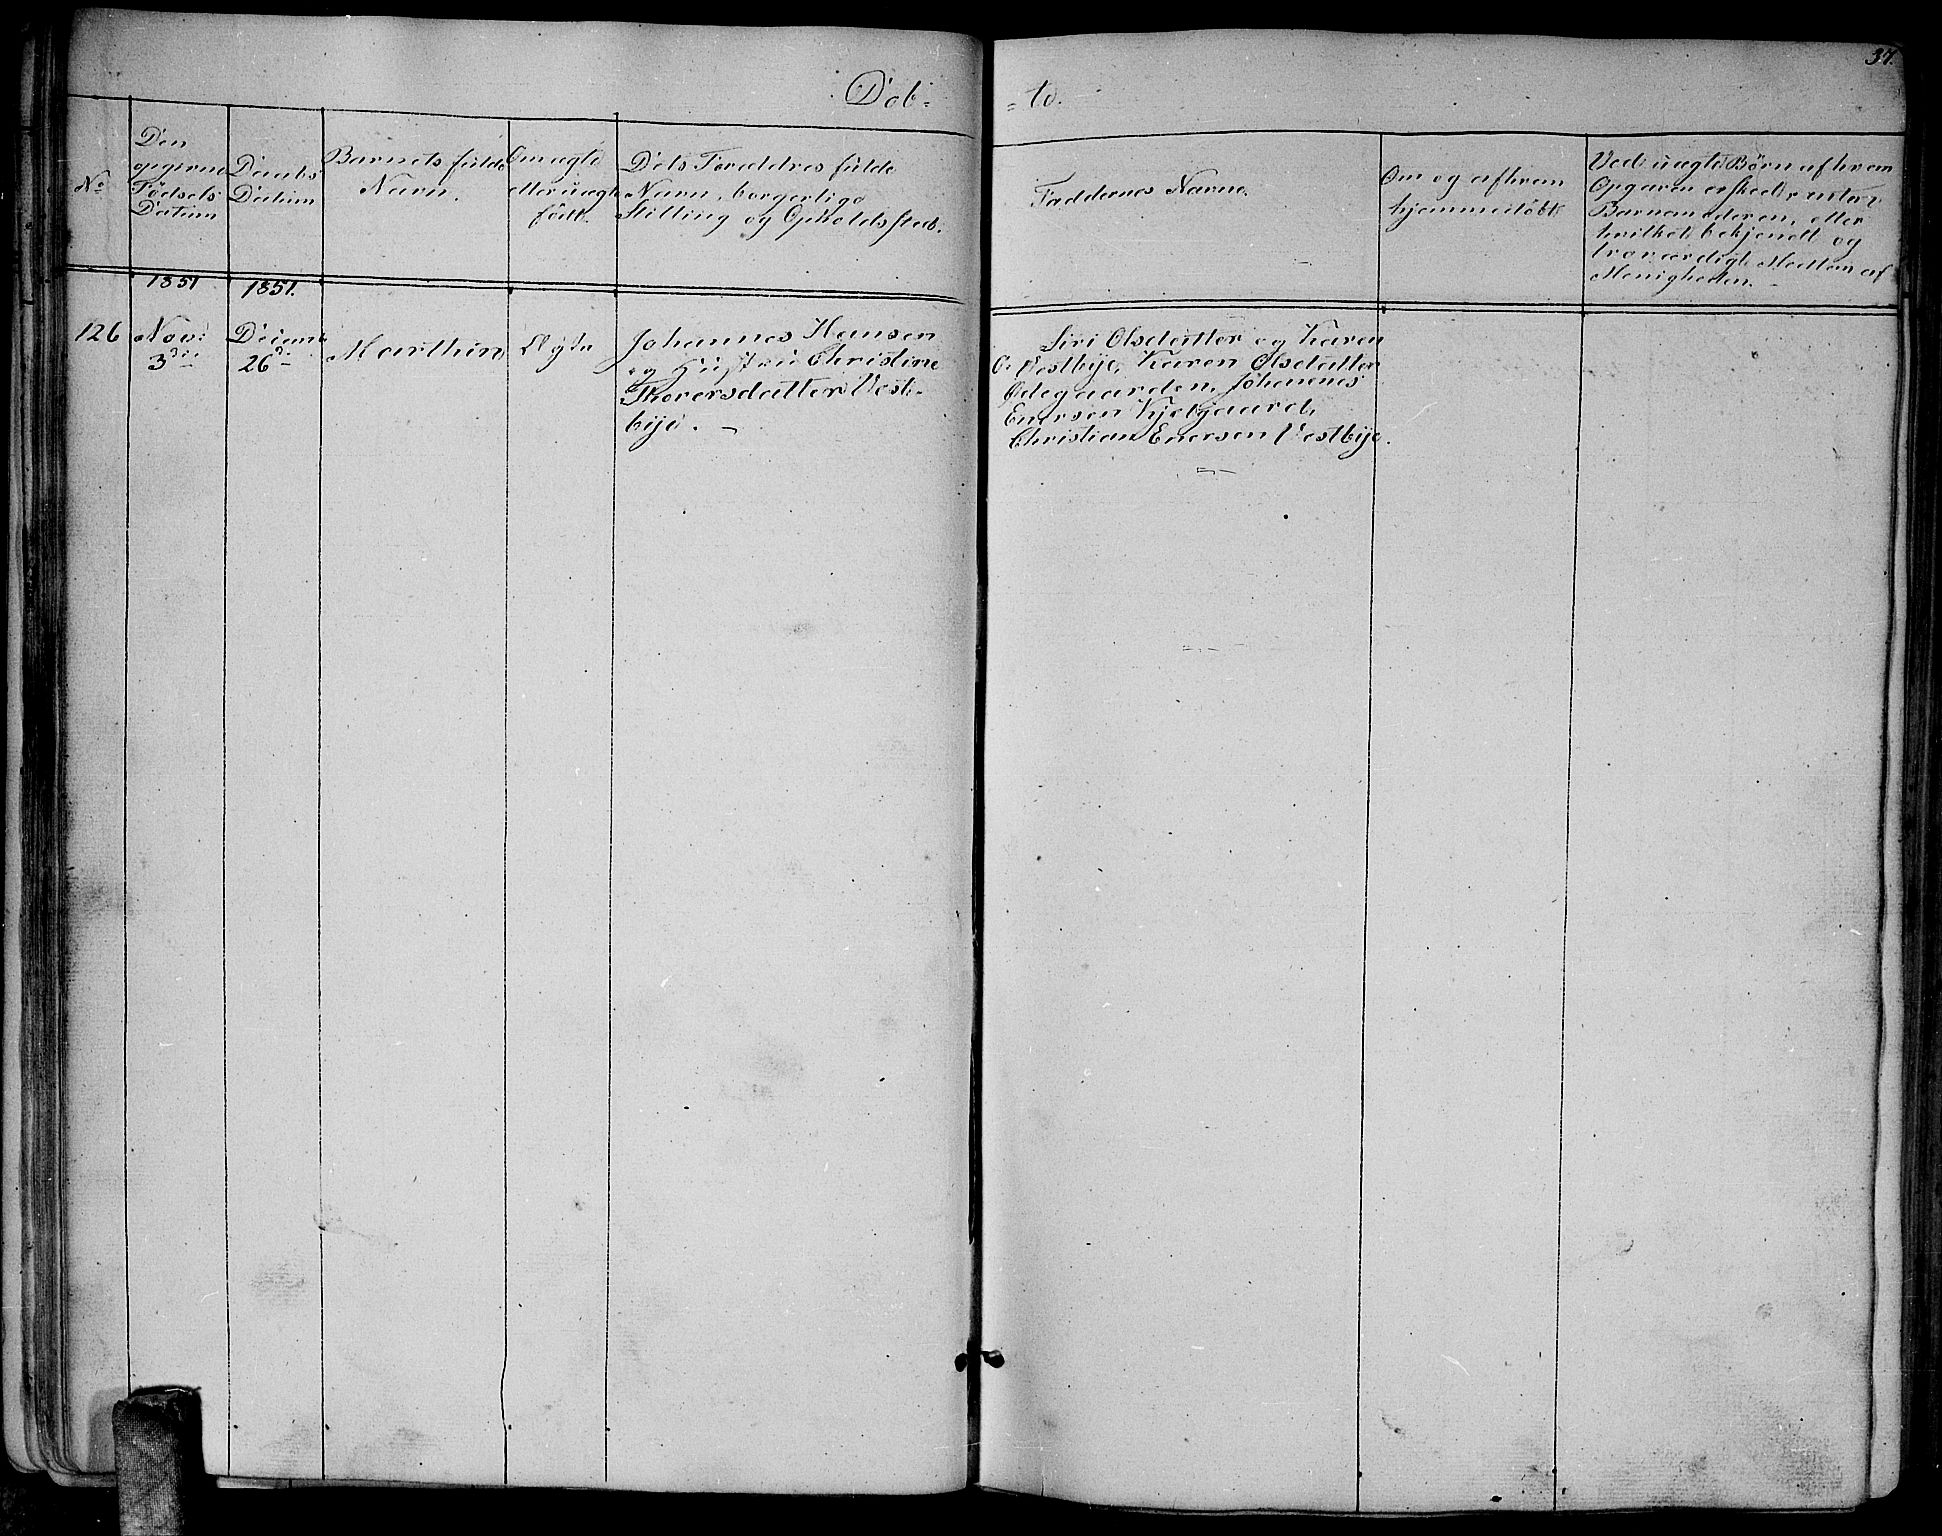 37.
Døb-
-te.
No
Den
opgivne
Fødsels
Datum
Daabs
Datum
Barnets fulde
Navn.
Om ægte
eller uægte
født.
Dets Forældres fulde
Navn, borgerlige
Stilling og Opholdssted.
Faddernes Navne.
Om og af hvem
hjemmedøbt
Ved uægte Børn af hvem
Opgaven er skedt, enten
Barnemoderen, eller
hvilket bekjendt og
troværdigt Medlem af
Menigheden.
1851
1851.
126
Nov:
3die
Decemb
26de
Marthin
Ægte
Johannes Hansen
og Hustru Christine
Thoresdatter Vest-
bye.
Siri Olsdatter og Karen
O. Vestbye, Karen Olsdatter
Ødegaarden, Johannes
Enersen Kjelgaard,
Christian Enersen Vestbye.